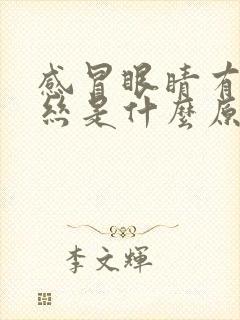 感冒眼睛有
絲是什麼原
李文輝